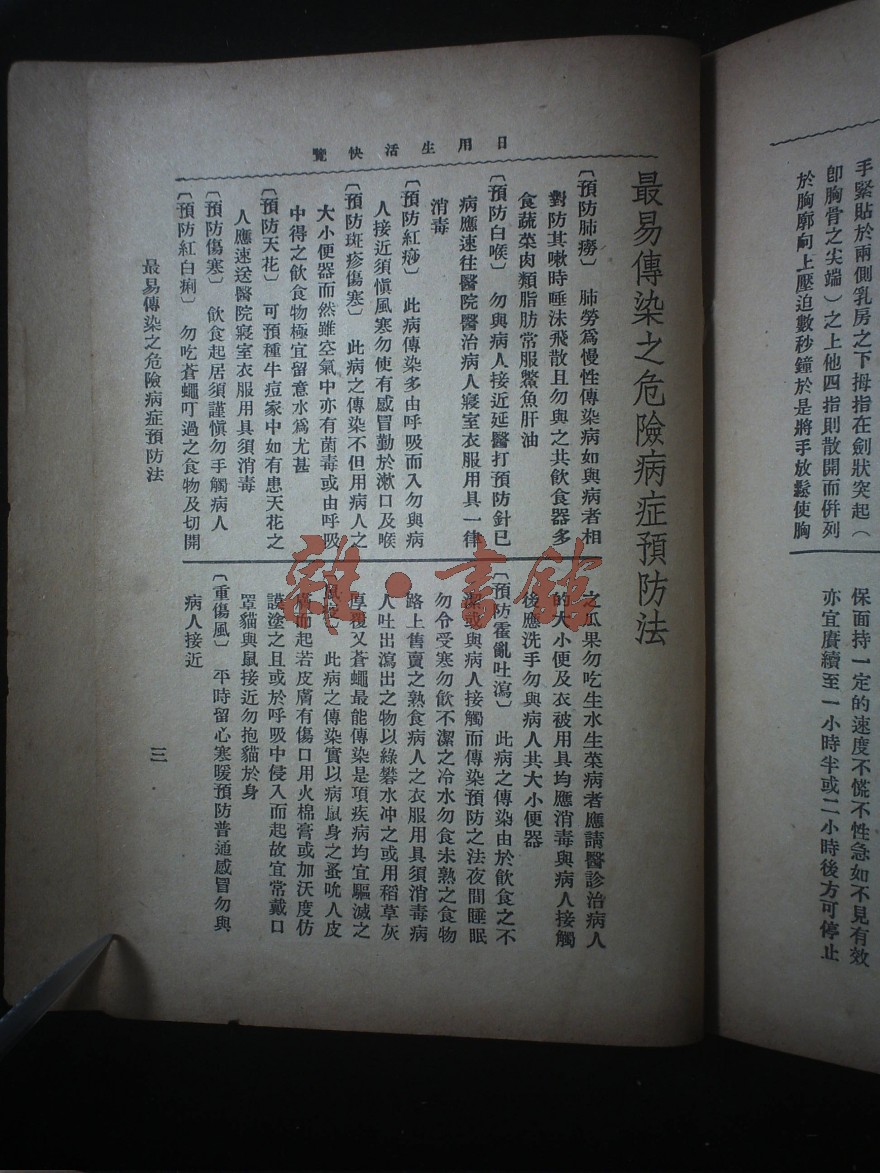 手緊貼於兩側乳房之下拇指在劍狀突起（
卽胸骨之尖端）之上他四指則散開而倂列
於胸廓向上壓迫數秒鐘於是將手放鬆使胸
保面持一定的速度不慌不性急如不見有效
亦宜賡續至一小時半或二小時後方可停止
日用生活快覽
最易傳染之危險病症預防法
〔預防肺癆〕 肺勞爲慢性傳染病如與病者相
對防其嗽時唾沫飛散且勿與之共飲食器多
食蔬菜肉類脂肪常服鱉魚肝油
〔預防白喉〕 勿與病人接近延醫打預防針已
病應速往醫院醫治病人寢室衣服用具一律
消毒
〔預防紅痧〕 此病傳染多由呼吸而入勿與病
人接近須愼風寒勿使有感冒勤於漱口及喉
〔預防斑疹傷寒〕 此病之傳染不但用病人之
大小便器而然雖空氣中亦有菌毒或由呼吸
中得之飲食物極宜留意水爲尤甚
〔預防天花〕 可預種牛痘家中如有患天花之
人應速送醫院寢室衣服用具須消毒
〔預防傷寒〕 飲食起居須謹愼勿手觸病人
〔預防紅白痢〕 勿吃蒼蠅叮過之食物及切開
之瓜果勿吃生水生菜病者應請醫診治病人
的大小便及衣被用具均應消毒與病人接觸
後應洗手勿與病人共大小便器
〔預防霍亂吐瀉〕 此病之傳染由於飲食之不
潔或與病人接觸而傳染預防之法夜間睡眠
勿令受寒勿飲不潔之冷水勿食未熟之食物
路上售賣之熟食病人之衣服用具須消毒病
人吐出瀉出之物以綠礬水冲之或用稻草灰
厚覆又蒼蠅最能傳染是項疾病均宜驅滅之
此病之傳染實以病鼠身之蚤吮人皮
膚而起若皮膚有傷口用火棉膏或加沃度仿
謨塗之且或於呼吸中侵入而起故宜常戴口
罩貓與鼠接近勿抱貓於身
〔重傷風〕 平時留心寒暖預防普通感冒勿與
病人接近
最易傳染之危險病症預防法
三
雜·書館